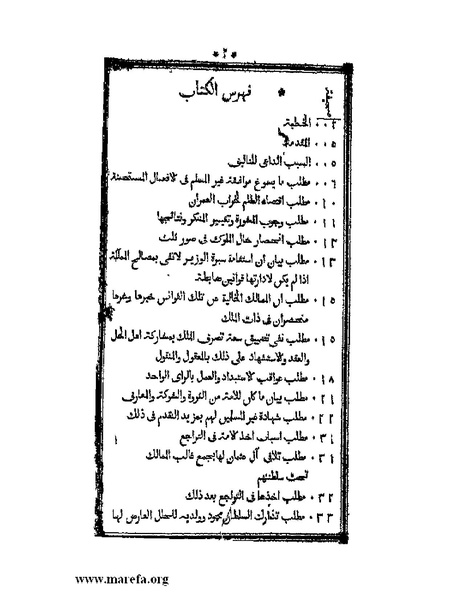 * ٢ *
صحيفة
* فهرس الكتاب
٠٠٢ الخطبة
٠٠٥ المقدمة
٠٠٥ السبب الداعي للتاليف
٠٠٦ مطلب ما يسوغ موافقة غير المسلم فى الافعال المستحسنة
٠١٠ مطلب اقتضاء الظلم لخراب العمران
٠١١ مطلب وجوب المشورة وتغيير المنكر ونتائجها
٠١٣ مطلب انحصار حال الملوك فى صور ثلث
٠١٣ مطلب بيان ان استقامة سيرة الوزير لاتفى بمصالح المملكة
اذا لم يكن لادارتها قوانين ضابطة
٠١٥ مطلب ان الممالك الخالية من تلك القوانين خيرها وشرها
منحصران فى ذات الملك
٠١٥ مطلب نفى تضييق سعة تصرف الملك بمشاركة اهل الحل
والعقد والاستشهاد على ذلك بالمعقول والمنقول
٠١٨ مطلب عواقب الاستبداد والعمل بالراى الواحد
٠٢١ مطلب بيان ما كان للامة من الثروة والشوكة والمعارف
٠٢٢ مطلب شهادة غير المسلمين لهم بمزيد التقدم فى ذلك
٠٣١ مطلب اسباب اخذ الامة فى التراجع
٠٣١ مطلب تلافى آل عثمان لها بجمع غالب الممالك
تحت سلطنتهم
٠٣٢ مطلب اخذها فى التراجع بعد ذلك
٠٣٣ مطلب تدارك السلطان محمود وولديه للخلل العارض لها
www.marefa.org